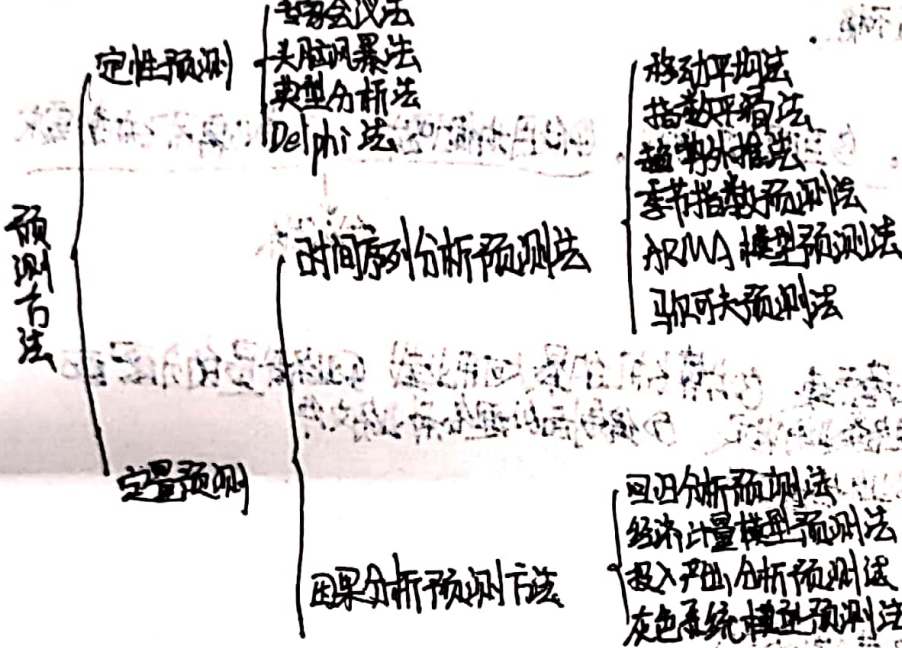 预测方法
定性预测
专家会议法
头脑风暴法
类型分析法
Delphi法
定量预测
时间序列分析预测法
移动平均法
指数平滑法
趋势外推法
季节指数预测法
ARMA模型预测法
马尔可夫预测法
因果分析预测方法
回归分析预测法
经济计量模型预测法
投入产出分析预测法
灰色系统模型预测法